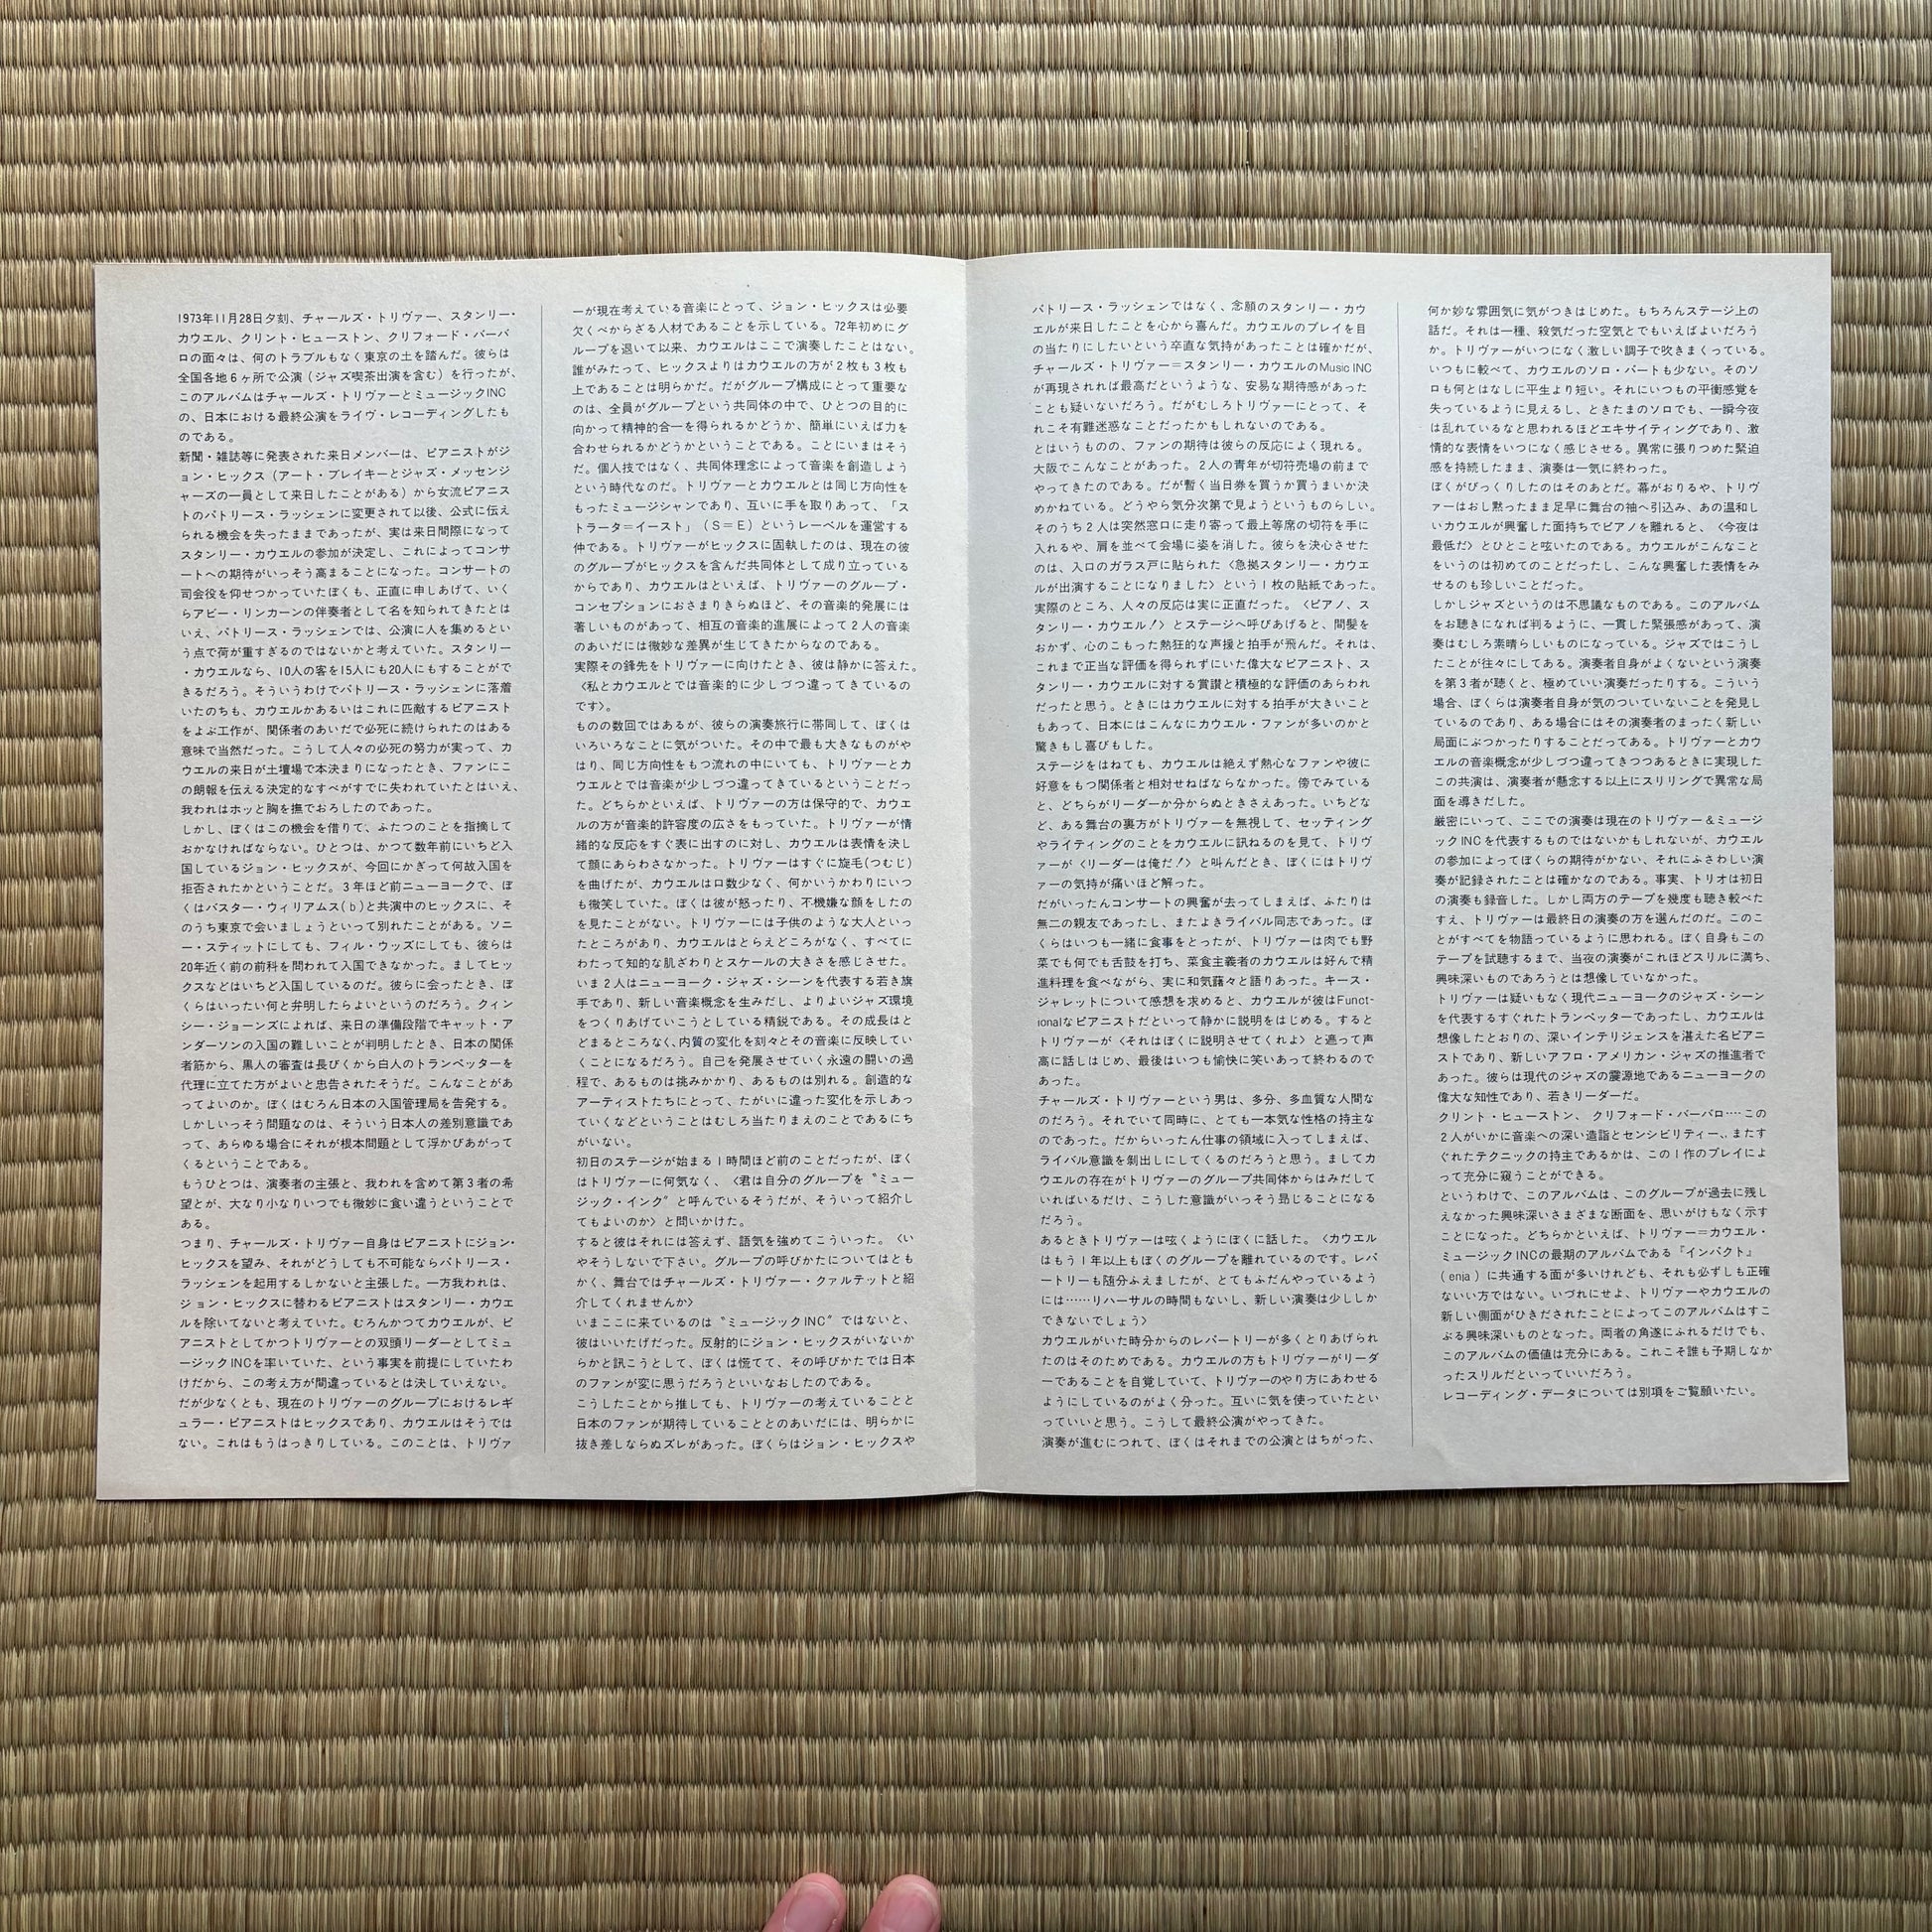 1973年11月28日夕刻、チャールズ・トリヴァー、スタンリー・
カウエル、クリント・ヒューストン、クリフォード・バーバ
ロの面々は、何のトラブルもなく東京の土を踏んだ。彼らは
全国各地6ヶ所で公演（ジャズ喫茶出演を含む）を行ったが、
このアルバムはチャールズ・トリヴァーとミュージックINC
の、日本における最終公演をライヴ・レコーディングしたも
のである。
新聞・雑誌等に発表された来日メンバーは、ピアニストがジ
ョン・ヒックス（アート・ブレイキーとジャズ・メッセンジ
ャーズの一員として来日したことがある）から女流ピアニス
トのパトリース・ラッシェンに変更されて以後、公式に伝え
られる機会を失ったままであったが、実は来日間際になって
スタンリー・カウエルの参加が決定し、これによってコンサ
ートへの期待がいっそう高まることになった。コンサートの
司会役を仰せつかっていたぼくも、正直に申しあげて、いく
らアビー・リンカーンの伴奏者として名を知られてきたとは
いえ、パトリース・ラッシェンでは、公演に人を集めるとい
う点で荷が重すぎるのではないかと考えていた。スタンリー
・カウエルなら、10人の客を15人にも20人にもすることがで
きるだろう。そういうわけでパトリース・ラッシェンに落着
いたのちも、カウエルかあるいはこれに匹敵するピアニスト
をよぶ工作が、関係者のあいだで必死に続けられたのはある
意味で当然だった。こうして人々の必死の努力が実って、カ
ウエルの来日が土壇場で本決まりになったとき、ファンにこ
の朗報を伝える決定的なすべがすでに失われていたとはいえ、
我われはホッと胸を撫でおろしたのであった。
しかし、ぼくはこの機会を借りて、ふたつのことを指摘して
おかなければならない。ひとつは、かつて数年前にいちど入
国しているジョン・ヒックスが、今回にかぎって何故入国を
拒否されたかということだ。3年ほど前ニューヨークで、ぼ
くはバスター・ウィリアムス(b)と共演中のヒックスに、そ
のうち東京で会いましょうといって別れたことがある。ソニ
ー・スティットにしても、フィル・ウッズにしても、彼らは
20年近く前の前科を問われて入国できなかった。ましてヒッ
クスなどはいちど入国しているのだ。彼らに会ったとき、ぼ
くらはいったい何と弁明したらよいというのだろう。クィン
シー・ジョーンズによれば、来日の準備段階でキャット・ア
ンダーソンの入国の難しいことが判明したとき、日本の関係
者筋から、黒人の審査は長びくから白人のトランペッターを
代理に立てた方がよいと忠告されたそうだ。こんなことがあ
ってよいのか。ぼくはむろん日本の入国管理局を告発する。
しかしいっそう問題なのは、そういう日本人の差別意識であ
って、あらゆる場合にそれが根本問題として浮かびあがって
くるということである。
もうひとつは、演奏者の主張と、我われを含めて第3者の希
望とが、大なり小なりいつでも微妙に食い違うということで
ある。
つまり、チャールズ・トリヴァー自身はピアニストにジョン・
ヒックスを望み、それがどうしても不可能ならパトリース・
ラッシェンを起用するしかないと主張した。一方我われは、
ジョン・ヒックスに替わるピアニストはスタンリー・カウエ
ルを除いてないと考えていた。むろんかつてカウエルが、ピ
アニストとしてかつトリヴァーとの双頭リーダーとしてミュ
ージックINCを率いていた、という事実を前提にしていたわ
けだから、この考え方が間違っているとは決していえない。
だが少なくとも、現在のトリヴァーのグループにおけるレギ
ュラー・ピアニストはヒックスであり、カウエルはそうでは
ない。これはもうはっきりしている。このことは、トリヴァ
ーが現在考えている音楽にとって、ジョン・ヒックスは必要
欠くべからざる人材であることを示している。72年初めにグ
ループを退いて以来、カウエルはここで演奏したことはない。
誰がみたって、ヒックスよりはカウエルの方が2枚も3枚も
上であることは明らかだ。だがグループ構成にとって重要な
のは、全員がグループという共同体の中で、ひとつの目的に
向かって精神的合一を得られるかどうか、簡単にいえば力を
合わせられるかどうかということである。ことにいまはそう
だ。個人技ではなく、共同体理念によって音楽を創造しよう
という時代なのだ。トリヴァーとカウエルとは同じ方向性を
もったミュージシャンであり、互いに手を取りあって、「ス
トラータ＝イースト」（S＝E）というレーベルを運営する
仲である。トリヴァーがヒックスに固執したのは、現在の彼
のグループがヒックスを含んだ共同体として成り立っている
からであり、カウエルはといえば、トリヴァーのグループ・
コンセプションにおさまりきらぬほど、その音楽的発展には
著しいものがあって、相互の音楽的進展によって2人の音楽
のあいだには微妙な差異が生じてきたからなのである。
実際その鋒先をトリヴァーに向けたとき、彼は静かに答えた。
〈私とカウエルとでは音楽的に少しづつ違ってきているの
です〉。
ものの数回ではあるが、彼らの演奏旅行に帯同して、ぼくは
いろいろなことに気がついた。その中で最も大きなものがや
はり、同じ方向性をもつ流れの中にいても、トリヴァーとカ
ウエルとでは音楽が少しづつ違ってきているということだっ
た。どちらかといえば、トリヴァーの方は保守的で、カウエ
ルの方が音楽的許容度の広さをもっていた。トリヴァーが情
緒的な反応をすぐ表に出すのに対し、カウエルは表情を決し
て顔にあらわさなかった。トリヴァーはすぐに旋毛(つむじ)
を曲げたが、カウエルは口数少なく、何かいうかわりにいつ
も微笑していた。ぼくは彼が怒ったり、不機嫌な顔をしたの
を見たことがない。トリヴァーには子供のような大人といっ
たところがあり、カウエルはとらえどころがなく、すべてに
わたって知的な肌ざわりとスケールの大きさを感じさせた。
いま2人はニューヨーク・ジャズ・シーンを代表する若き旗
手であり、新しい音楽概念を生みだし、よりよいジャズ環境
をつくりあげていこうとしている精鋭である。その成長はと
どまるところなく、内質の変化を刻々とその音楽に反映してい
くことになるだろう。自己を発展させていく永遠の闘いの過
程で、あるものは挑みかかり、あるものは別れる。創造的な
アーティストたちにとって、たがいに違った変化を示しあっ
ていくなどということはむしろ当たりまえのことであるにち
がいない。
初日のステージが始まる1時間ほど前のことだったが、ぼく
はトリヴァーに何気なく、〈君は自分のグループを〝ミュー
ジック・インク〟と呼んでいるそうだが、そういって紹介し
てもよいのか〉と問いかけた。
すると彼はそれには答えず、語気を強めてこういった。〈い
やそうしないで下さい。グループの呼びかたについてはとも
かく、舞台ではチャールズ・トリヴァー・クァルテットと紹
介してくれませんか〉
いまここに来ているのは〝ミュージックINC〟ではないと、
彼はいいたげだった。反射的にジョン・ヒックスがいないか
らかと訊こうとして、ぼくは慌てて、その呼びかたでは日本
のファンが変に思うだろうといいなおしたのである。
こうしたことから推しても、トリヴァーの考えていることと
日本のファンが期待していることとのあいだには、明らかに
抜き差しならぬズレがあった。ぼくらはジョン・ヒックスや
パトリース・ラッシェンではなく、念願のスタンリー・カウ
エルが来日したことを心から喜んだ。カウエルのプレイを目
の当たりにしたいという卒直な気持があったことは確かだが、
チャールズ・トリヴァー＝スタンリー・カウエルのMusic INC
が再現されれば最高だというような、安易な期待感があった
ことも疑いないだろう。だがむしろトリヴァーにとって、そ
れこそ有難迷惑なことだったかもしれないのである。
とはいうものの、ファンの期待は彼らの反応によく現れる。
大阪でこんなことがあった。2人の青年が切符売場の前まで
やってきたのである。だが暫く当日券を買うか買うまいか決
めかねている。どうやら気分次第で見ようというものらしい。
そのうち2人は突然窓口に走り寄って最上等席の切符を手に
入れるや、肩を並べて会場に姿を消した。彼らを決心させた
のは、入口のガラス戸に貼られた〈急拠スタンリー・カウエ
ルが出演することになりました〉という1枚の貼紙であった。
実際のところ、人々の反応は実に正直だった。〈ピアノ、ス
タンリー・カウエル！〉とステージへ呼びあげると、間髪を
おかず、心のこもった熱狂的な声援と拍手が飛んだ。それは、
これまで正当な評価を得られずにいた偉大なピアニスト、ス
タンリー・カウエルに対する賞讃と積極的な評価のあらわれ
だったと思う。ときにはカウエルに対する拍手が大きいこと
もあって、日本にはこんなにカウエル・ファンが多いのかと
驚きもし喜びもした。
ステージをはねても、カウエルは絶えず熱心なファンや彼に
好意をもつ関係者と相対せねばならなかった。傍でみている
と、どちらがリーダーか分からぬときさえあった。いちどな
ど、ある舞台の裏方がトリヴァーを無視して、セッティング
やライティングのことをカウエルに訊ねるのを見て、トリヴ
ァーが〈リーダーは俺だ！〉と叫んだとき、ぼくにはトリヴ
ァーの気持が痛いほど解った。
だがいったんコンサートの興奮が去ってしまえば、ふたりは
無二の親友であったし、またよきライバル同志であった。ぼ
くらはいつも一緒に食事をとったが、トリヴァーは肉でも野
菜でも何でも舌鼓を打ち、菜食主義者のカウエルは好んで精
進料理を食べながら、実に和気藹々と語りあった。キース・
ジャレットについて感想を求めると、カウエルが彼はFunct-
ionalなピアニストだといって静かに説明をはじめる。すると
トリヴァーが〈それはぼくに説明させてくれよ〉と遮って声
高に話しはじめ、最後はいつも愉快に笑いあって終わるので
あった。
チャールズ・トリヴァーという男は、多分、多血質な人間な
のだろう。それでいて同時に、とても一本気な性格の持主な
のであった。だからいったん仕事の領域に入ってしまえば、
ライバル意識を剝出しにしてくるのだろうと思う。ましてカ
ウエルの存在がトリヴァーのグループ共同体からはみだして
いればいるだけ、こうした意識がいっそう昻じることになる
だろう。
あるときトリヴァーは呟くようにぼくに話した。〈カウエル
はもう1年以上もぼくのグループを離れているのです。レパ
ートリーも随分ふえましたが、とてもふだんやっているよう
には……リハーサルの時間もないし、新しい演奏は少ししか
できないでしょう〉
カウエルがいた時分からのレパートリーが多くとりあげられ
たのはそのためである。カウエルの方もトリヴァーがリーダ
ーであることを自覚していて、トリヴァーのやり方にあわせる
ようにしているのがよく分った。互いに気を使っていたとい
っていいと思う。こうして最終公演がやってきた。
演奏が進むにつれて、ぼくはそれまでの公演とはちがった、
何か妙な雰囲気に気がつきはじめた。もちろんステージ上の
話だ。それは一種、殺気だった空気とでもいえばよいだろう
か。トリヴァーがいつになく激しい調子で吹きまくっている。
いつもに較べて、カウエルのソロ・パートも少ない。そのソ
ロも何とはなしに平生より短い。それにいつもの平衡感覚を
失っているように見えるし、ときたまのソロでも、一瞬今夜
は乱れているなと思われるほどエキサイティングであり、激
情的な表情をいつになく感じさせる。異常に張りつめた緊迫
感を持続したまま、演奏は一気に終わった。
ぼくがびっくりしたのはそのあとだ。幕がおりるや、トリヴ
ァーはおし黙ったまま足早に舞台の袖へ引込み、あの温和し
いカウエルが興奮した面持ちでピアノを離れると、〈今夜は
最低だ〉とひとこと呟いたのである。カウエルがこんなこと
をいうのは初めてのことだったし、こんな興奮した表情をみ
せるのも珍しいことだった。
しかしジャズというのは不思議なものである。このアルバム
をお聴きになれば判るように、一貫した緊張感があって、演
奏はむしろ素晴らしいものになっている。ジャズではこうし
たことが往々にしてある。演奏者自身がよくないという演奏
を第3者が聴くと、極めていい演奏だったりする。こういう
場合、ぼくらは演奏者自身が気のついていないことを発見し
ているのであり、ある場合にはその演奏者のまったく新しい
局面にぶつかったりすることだってある。トリヴァーとカウ
エルの音楽概念が少しづつ違ってきつつあるときに実現した
この共演は、演奏者が懸念する以上にスリリングで異常な局
面を導きだした。
厳密にいって、ここでの演奏は現在のトリヴァー＆ミュージ
ックINCを代表するものではないかもしれないが、カウエル
の参加によってぼくらの期待がかない、それにふさわしい演
奏が記録されたことは確かなのである。事実、トリオは初日
の演奏も録音した。しかし両方のテープを幾度も聴き較べた
すえ、トリヴァーは最終日の演奏の方を選んだのだ。このこ
とがすべてを物語っているように思われる。ぼく自身もこの
テープを試聴するまで、当夜の演奏がこれほどスリルに満ち、
興味深いものであろうとは想像していなかった。
トリヴァーは疑いもなく現代ニューヨークのジャズ・シーン
を代表するすぐれたトランペッターであったし、カウエルは
想像したとおりの、深いインテリジェンスを湛えた名ピアニ
ストであり、新しいアフロ・アメリカン・ジャズの推進者で
あった。彼らは現代のジャズの震源地であるニューヨークの
偉大な知性であり、若きリーダーだ。
クリント・ヒューストン、クリフォード・バーバロ‥‥この
2人がいかに音楽への深い造詣とセンシビリティー、またす
ぐれたテクニックの持主であるかは、この1作のプレイによ
って充分に窺うことができる。
というわけで、このアルバムは、このグループが過去に残し
えなかった興味深いさまざまな断面を、思いがけもなく示す
ことになった。どちらかといえば、トリヴァー＝カウエル・
ミュージックINCの最期のアルバムである『インパクト』
(enja)に共通する面が多いけれども、それも必ずしも正確
ないい方ではない。いづれにせよ、トリヴァーやカウエルの
新しい側面がひきだされたことによってこのアルバムはすこ
ぶる興味深いものとなった。両者の角逐にふれるだけでも、
このアルバムの価値は充分にある。これこそ誰も予期しなか
ったスリルだといっていいだろう。
レコーディング・データについては別項をご覧願いたい。